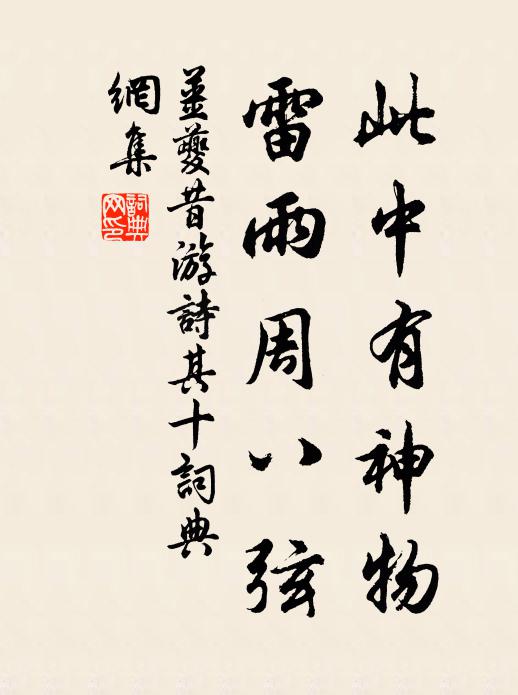 此中有神物
雷雨周八弦
姜夔昔游詩其十詞典
網集
詞典
网印